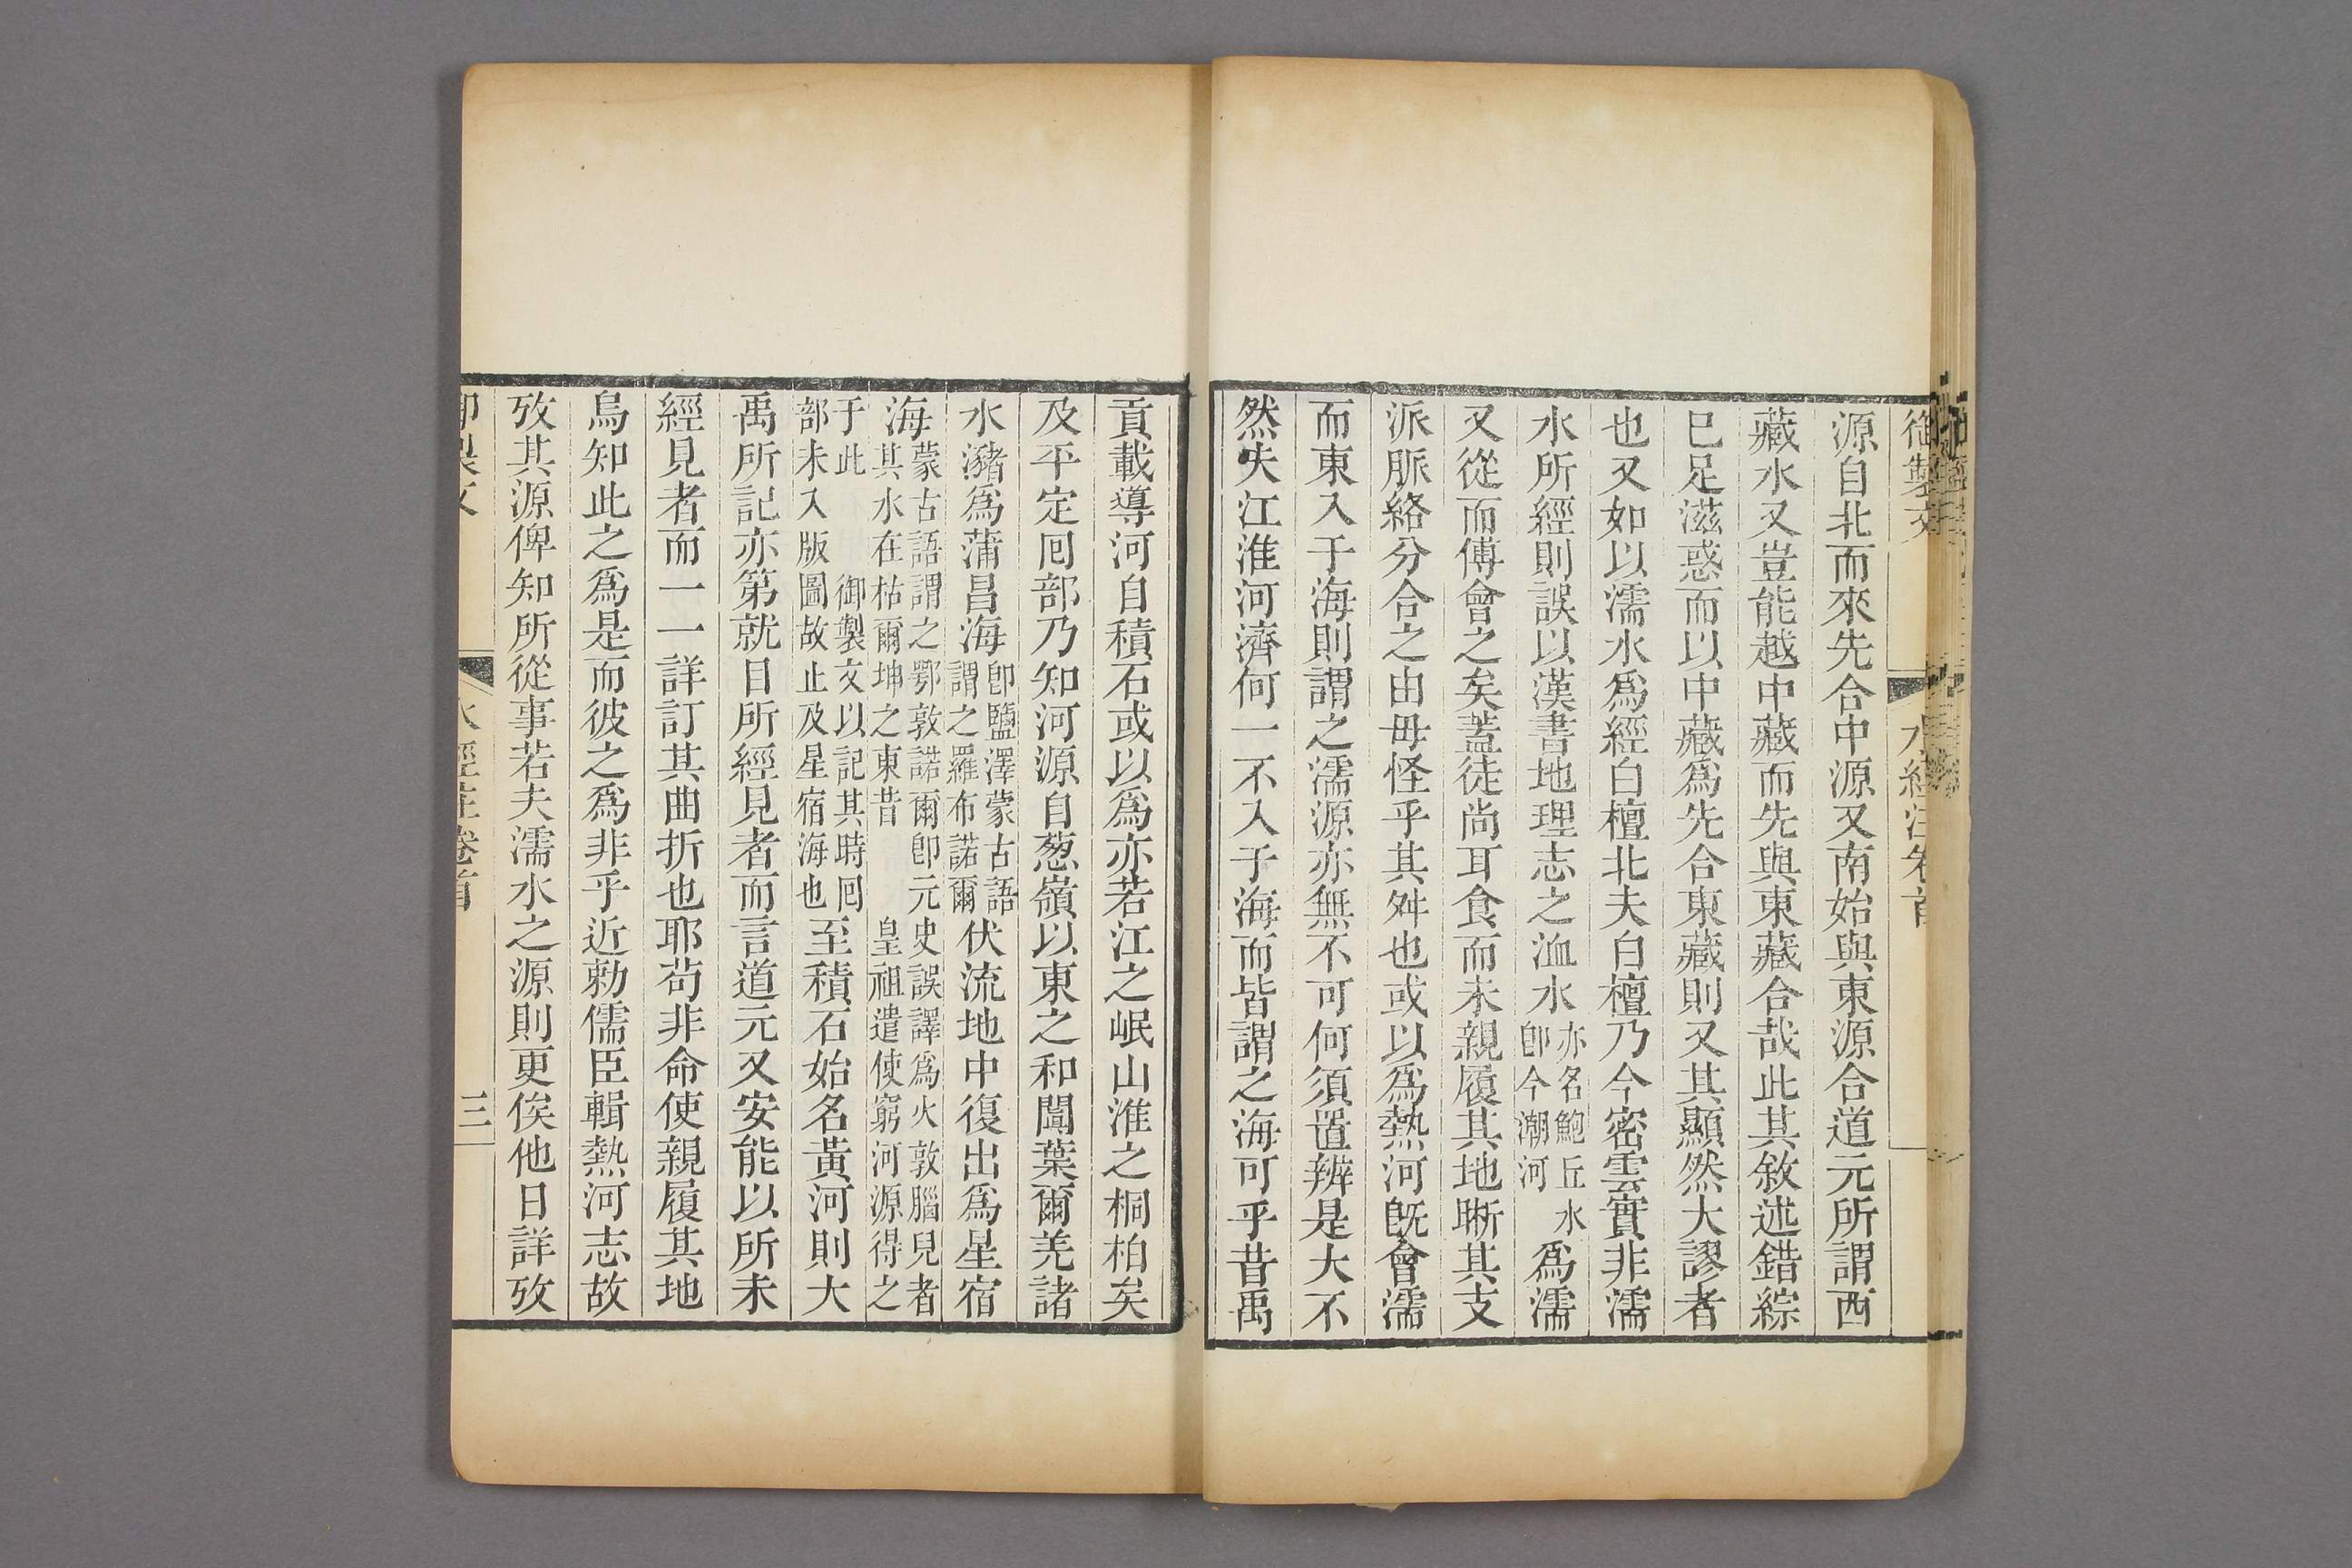 御製文
水經注卷首
源自北而來先合中源又南始與東源合道元所謂西
藏水又豈能越中藏而先與東藏合哉此其敘述錯綜
已足滋惑而以中藏爲先合東藏則又其顯然大謬者
也又如以濡水爲經白檀北夫白檀乃今密雲實非濡
水所經則誤以漢書地理志之洫水亦名鮑丘水卽今潮河爲濡
又從而傅會之矣蓋徒尚耳食而未親履其地晰其支
派脈絡分合之由毋怪乎其舛也或以爲熱河旣會濡
而東入于海則謂之濡源亦無不可何須置辨是大不
然夫江淮河濟何一不入于海而皆謂之海可乎昔禹
貢載導河自積石或以爲亦若江之岷山淮之桐柏矣
及平定囘部乃知河源自葱嶺以東之和闐葉爾羌諸
水瀦爲蒲昌海卽鹽澤蒙古語謂之羅布諾爾伏流地中復出爲星宿
海蒙古語謂之鄂敦諾爾卽元史誤譯爲火敦腦兒者其水在枯爾坤之東昔皇祖遣使窮河源得之
于此御製文以記其時囘部未入版圖故止及星宿海也至積石始名黃河則大
禹所記亦第就目所經見者而言道元又安能以所未
經見者而一一詳訂其曲折也耶苟非命使親履其地
烏知此之爲是而彼之爲非乎近勅儒臣輯熱河志故
攷其源俾知所從事若夫濡水之源則更俟他日詳攷
御製文
水經注卷首
三